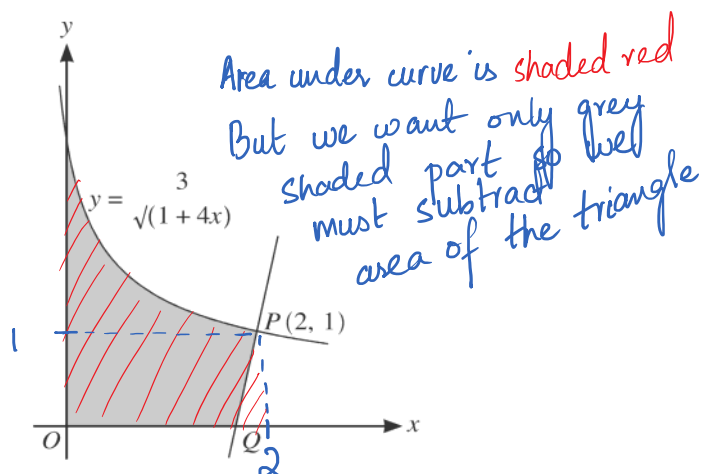 y
Area under curve is shaded red
But we want only grey
shaded part so we
must subtract
area of the triangle
y = 3/√(1 + 4x)
1
P(2, 1)
O
Q
x
2